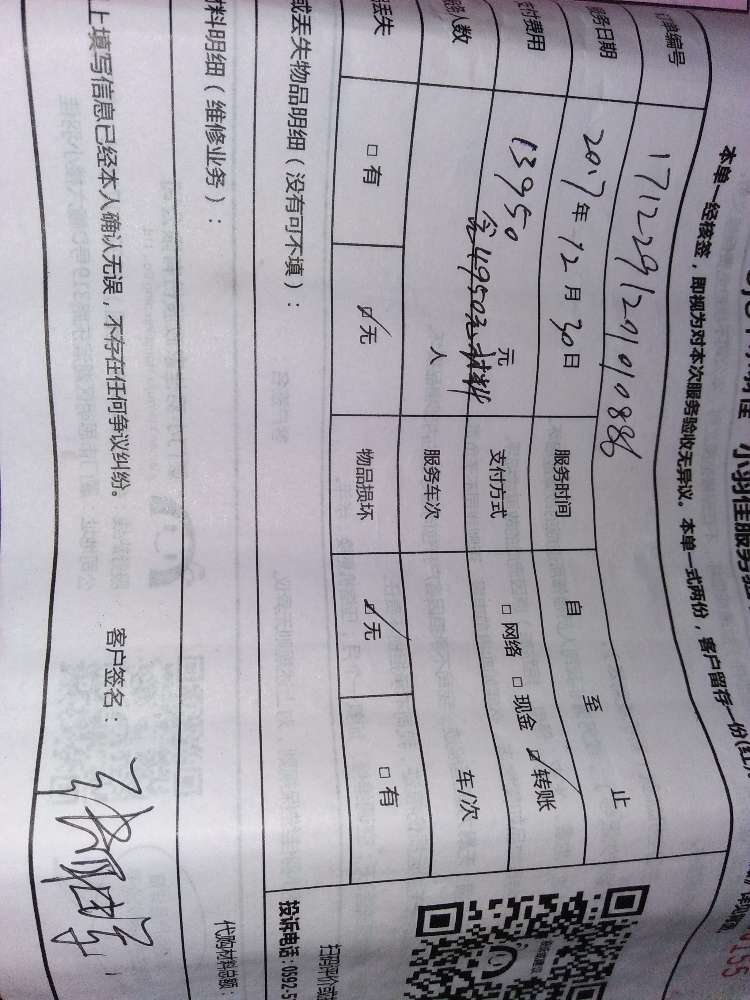 小羽佳服务验
本单一经核签，即视为对本次服务验收无异议。本单一式两份，客户留存一份(红
155
单编号 171229129010886
务日期 2017年12月30日 服务时间 自 至 止
付费用 13950 元 支付方式 □网络 □现金 ☑转账
含4950元材料
人数 人 服务车次 车/次
丢失 □有 ☑无 物品损坏 ☑无 □有
或丢失物品明细（没有可不填）：
料明细（维修业务）： 代购材料总额：
上填写信息已经本人确认无误，不存在任何争议纠纷。 客户签名：
投诉电话：0592-5